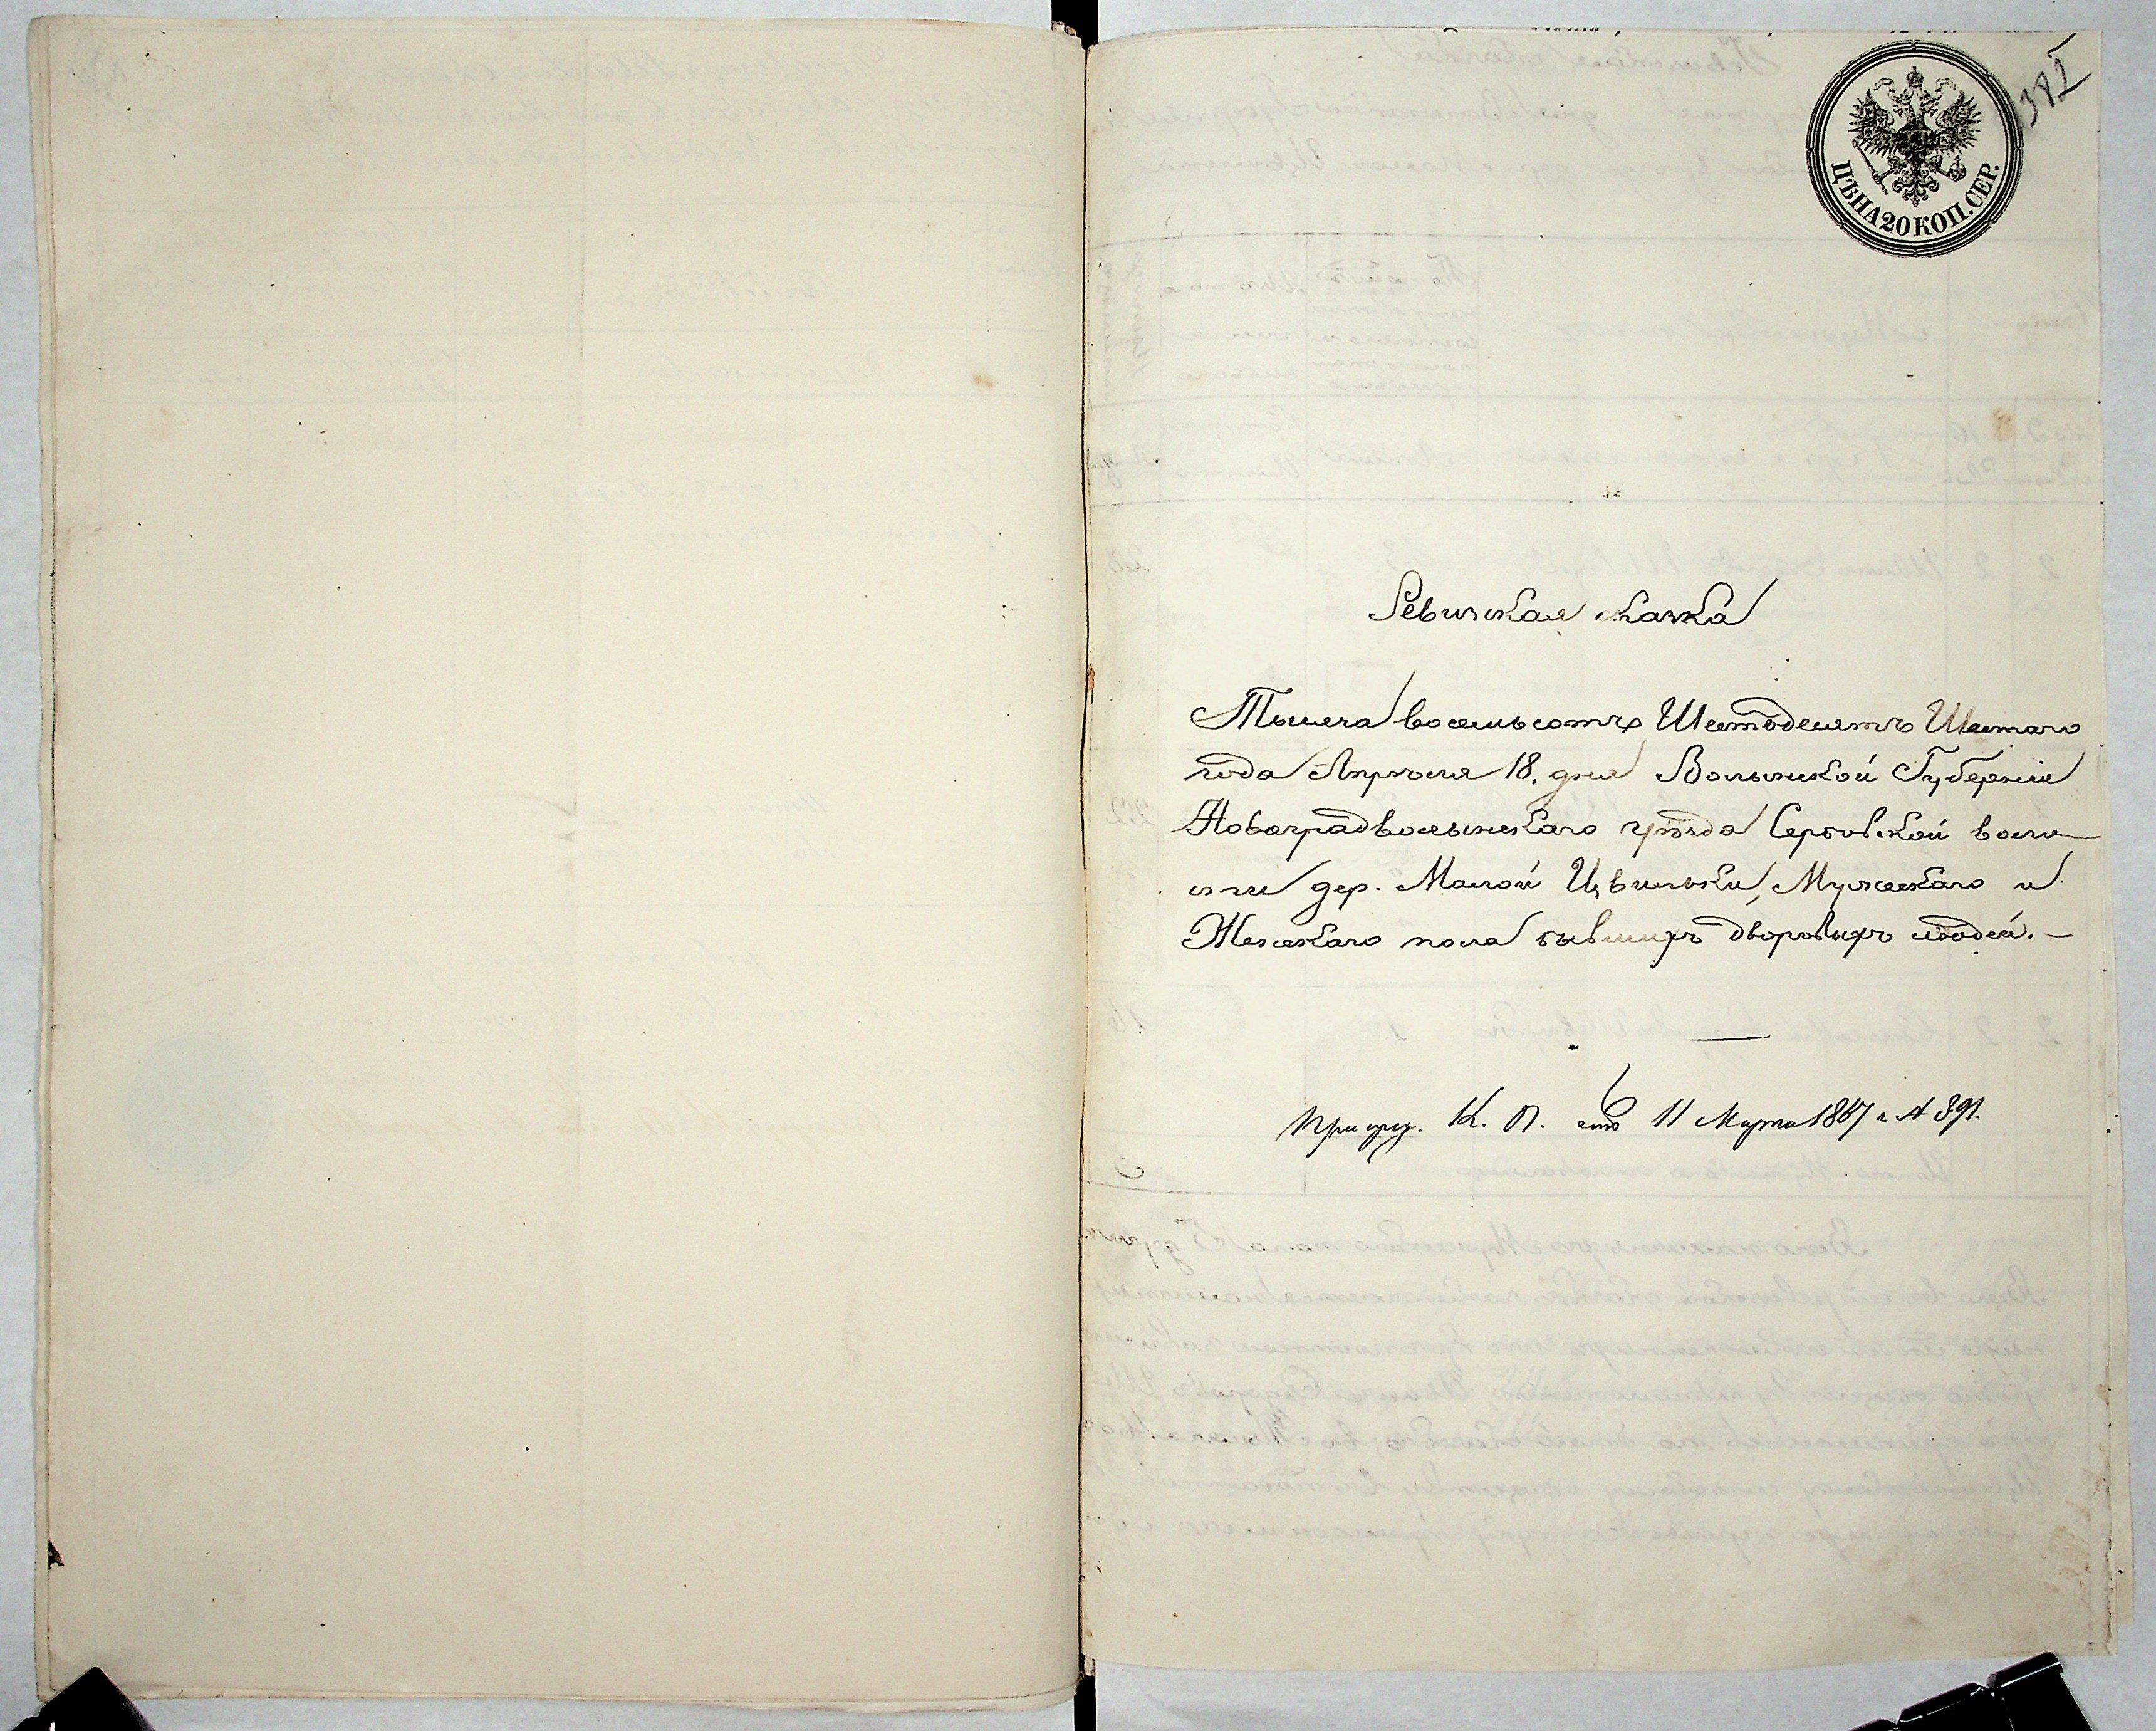 382
ЦѢНА 20 КОП. СЕР.
Ревизская сказка
Тысяча восемьсотъ Шестьдесятъ Шестаго
года Апрѣля 18. дня Волынской Губерніи
Новоградволынскаго уѣзда Сербовской воло-
сти дер. Малой Цвильки, Мужескаго и
Женскаго пола бывшихъ дворовыхъ людей.—
При пред. К. П. отъ 11 Марта 1867 г. № 891.